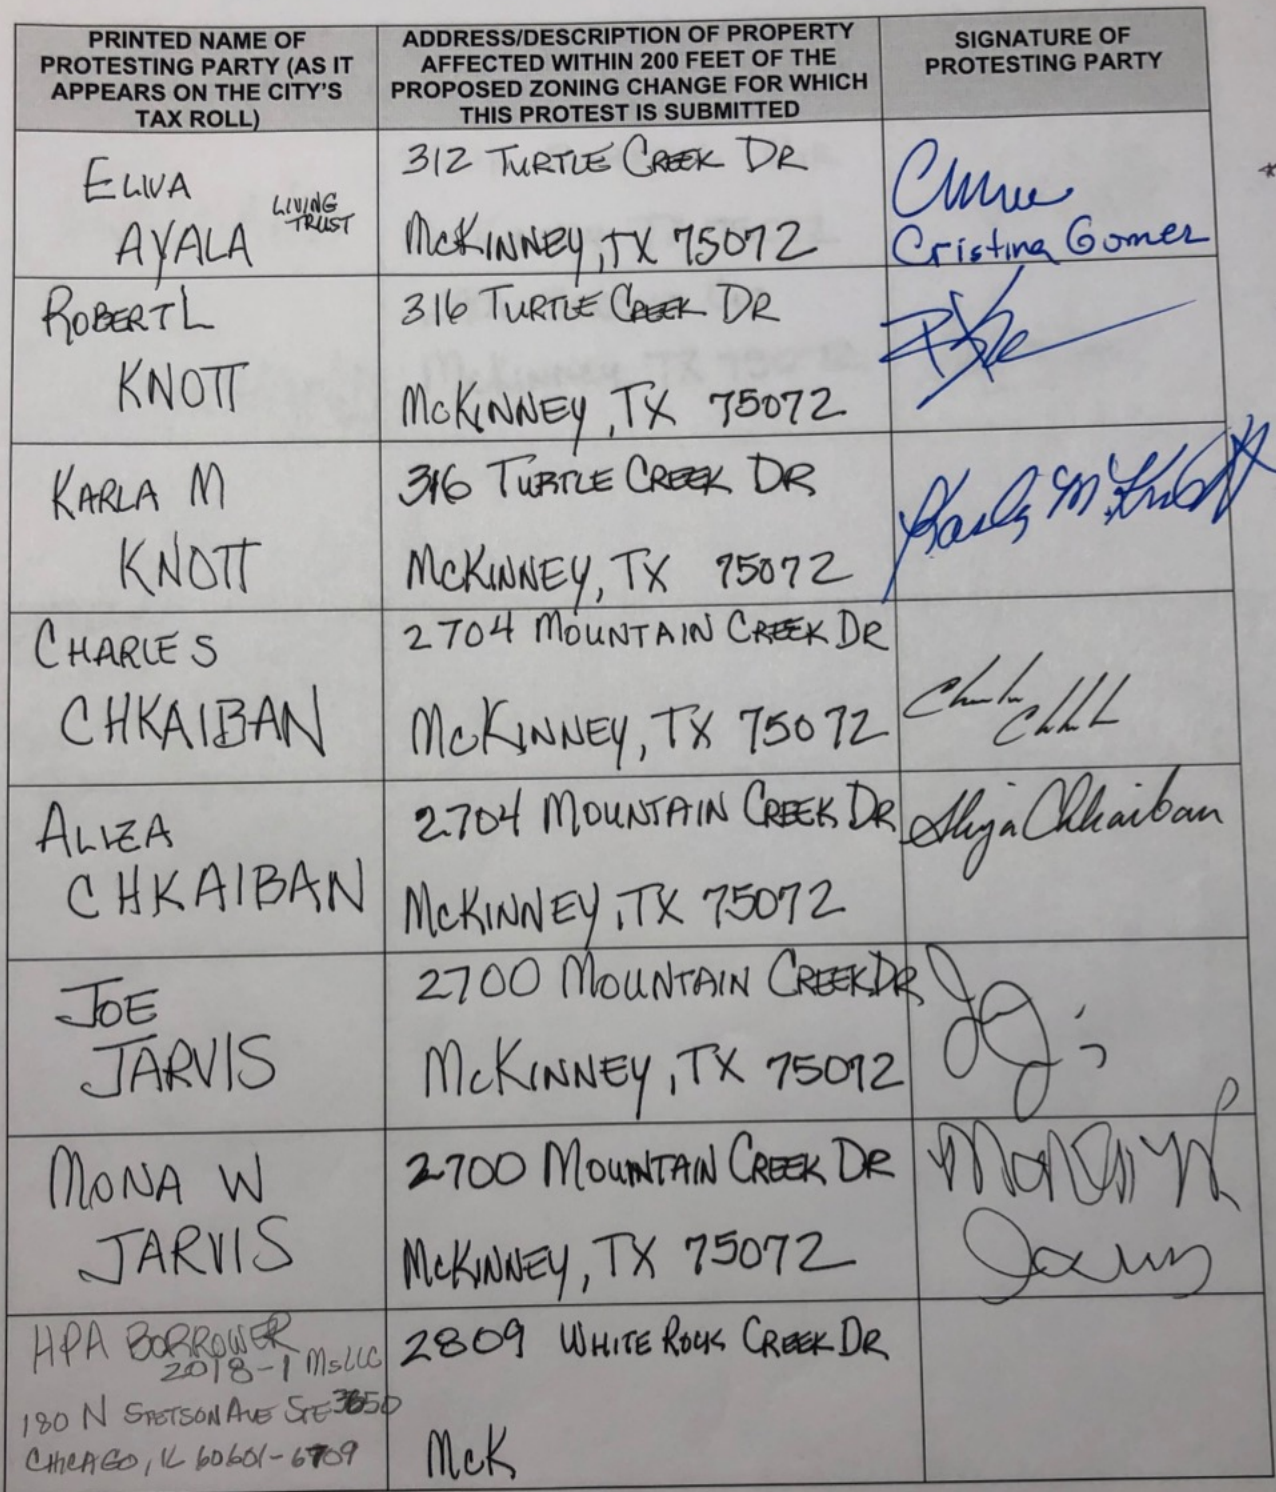 PRINTED NAME OF
PROTESTING PARTY (AS IT
APPEARS ON THE CITY'S
TAX ROLL)
ADDRESS/DESCRIPTION OF PROPERTY
AFFECTED WITHIN 200 FEET OF THE
PROPOSED ZONING CHANGE FOR WHICH
THIS PROTEST IS SUBMITTED
SIGNATURE OF
PROTESTING PARTY
ELIVA
AYALA
LIVING
TRUST
312 TURTLE CREEK DR
MCKINNEY, TX 75072
Cristina Gomez
*
ROBERT L
KNOTT
316 TURTLE CREEK DR
MCKINNEY, TX 75072
KARLA M
KNOTT
316 TURTLE CREEK DR
MCKINNEY, TX 75072
Karla M. Knott
CHARLES
CHKAIBAN
2704 MOUNTAIN CREEK DR
MCKINNEY, TX 75072
ALIZA
CHKAIBAN
2704 MOUNTAIN CREEK DR
MCKINNEY, TX 75072
Aliza Chkaiban
JOE
JARVIS
2700 MOUNTAIN CREEK DR
MCKINNEY, TX 75072
MONA W
JARVIS
2700 MOUNTAIN CREEK DR
MCKINNEY, TX 75072
Mona W
Jarvis
HPA BORROWER
2018-1 MSLLC
180 N STETSON AVE STE 3650
CHICAGO, IL 60601-6709
2809 WHITE ROCK CREEK DR
McK